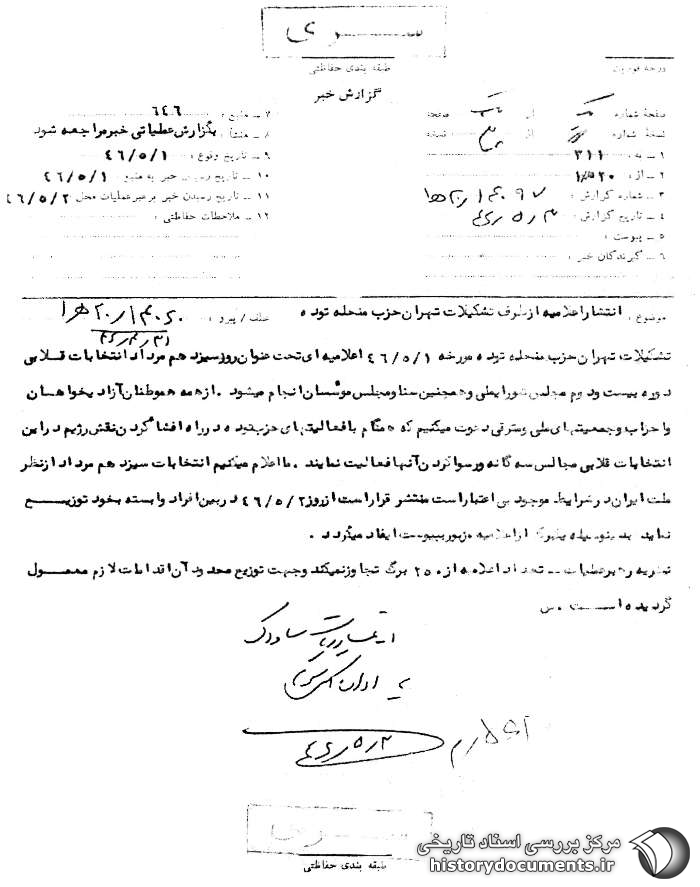 سری
طبقه بندی حفاظتی
درجه فوریت
گزارش خبر
صفحه شماره یک از یک صفحه
نسخه شماره از نسخه
۱ ــ به : ۳۱۱
۲ ــ از : ۲۰ ه ۱
۳ ــ شماره گزارش :
۴ ــ تاریخ گزارش : ۴۶/۵/۳
۵ ــ پیوست :
۶ ــ گیرندگان خبر :
۷ ــ منبع : ۶۴۶
۸ ــ منشأ : بگزارش عملیاتی خبر مراجعه شود
۹ ــ تاریخ وقوع : ۴۶/۵/۱
۱۰ ــ تاریخ رسیدن خبر به منبع : ۴۶/۵/۱
۱۱ ــ تاریخ رسیدن خبر برهبر عملیات محل ۴۶/۵/۲
۱۲ ــ ملاحظات حفاظتی :
موضوع : انتشار اعلامیه از طرف تشکیلات تهران حزب منحله توده
عطف / پیرو :
تشکیلات تهران حزب منحله توده مورخه ۴۶/۵/۱ اعلامیه ای تحت عنوان روز سیزدهم مرداد انتخابات قلابی
دوره بیست ودوم مجلس شورایملی وهمچنین سنا ومجلس موسسان انجام میشود . از همه هموطنان آزادیخواهان
واحزاب وجمعیتهای ملی ومترقی دعوت میکنیم که همگام با فعالیتهای حزب توده در راه افشا کردن نقش رژیم در این
انتخابات قلابی مجالس سه گانه ورسوا کردن آنها فعالیت نمایند . ما اعلام میکنیم انتخابات سیزدهم مرداد از نظر
ملت ایران در شرایط موجود بی اعتبار است منتشر قرار است از روز ۴۶/۵/۲ در بین افراد وابسته بخود توزیع
نماید بدینوسیله یکبرگ از اعلامیه مزبور بپیوست ایفاد میگردد .
نظریه رهبر عملیات ــ تعداد اعلامیه از ۲۵۰ برگ تجاوز نمیکند وجهت توزیع محدود آن اقدامات لازم معمول
گردیده است . س
۴۶/۵/۳
سری
طبقه بندی حفاظتی
مرکز بررسی اسناد تاریخی
historydocuments.ir